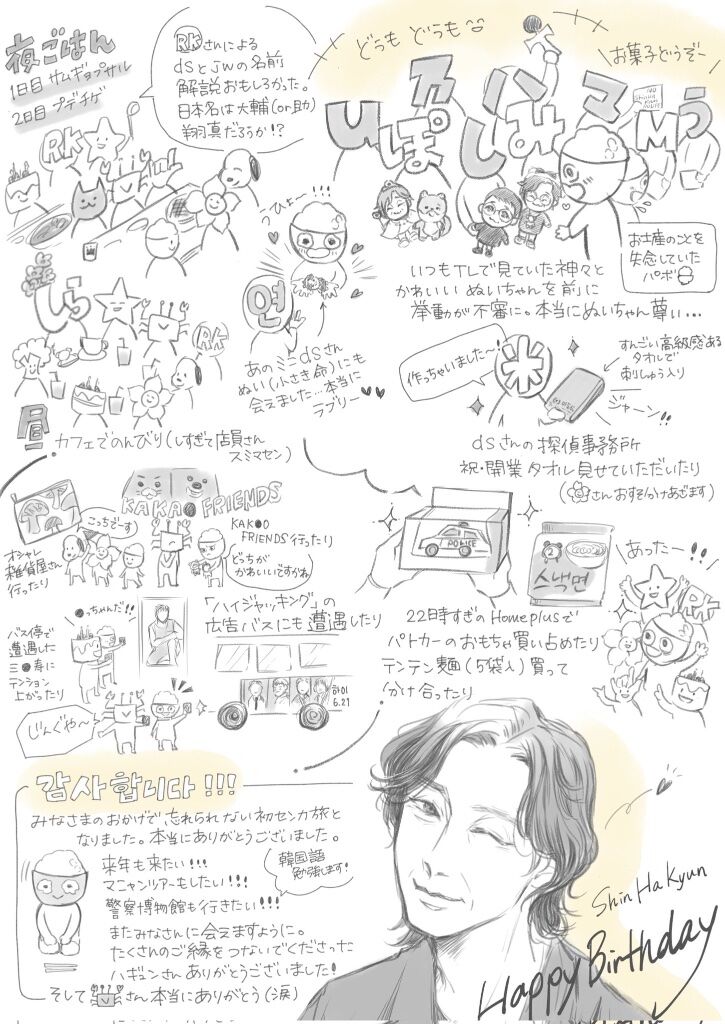 夜ごはん
1日目 サムギョプサル
2日目 プデチゲ
RKさんによる
dsとjwの名前
解説おもしろかった。
日本名は大輔(or助)
翔真だろうか!?
どうも どうも
お菓子どうぞー
RK
うひょー
연
あのミニdsさん
ぬい(小さき命)にも
会えました…本当に
ラブリー
お土産のことを
失念していた
パボ
いつもTLで見ていた神々と
かわいいぬいちゃんを前に
挙動が不審に。本当にぬいちゃん尊い…
しら
RK
昼 カフェでのんびり(しすぎて店員さん
スミマセン)
作っちゃいました〜!
米
すんごい高級感ある
タオルで
刺しゅう入り
ジャーン!!
dsさんの探偵事務所
祝・開業タオル見せていただいたり
(さんおすそわけあざます)
KAKAO FRIENDS
こっちでーす
オシャレ
雑貨屋さん
行ったり
KAKOO
FRIENDS行ったり
どっちが
かわいいですかね
●っちゃんだ!!
バス停で
遭遇した
三●寿に
テンション
上がったり
「ハイジャッキング」の
広告バスにも遭遇したり
하이
6.21
じんぐや〜
POLICE
스낵면
あったー!!
RK
22時すぎのHomeplusで
パトカーのおもちゃ買い占めたり
テンテン麺(5袋入)買って
分け合ったり
감사합니다!!!
みなさまのおかげで、忘れられない初センカ旅と
なりました。本当にありがとうございました。
来年も来たい!!!
マニャンツアーもしたい!!!
警察博物館も行きたい!!!
韓国語
勉強します!
またみなさんに会えますように。
たくさんのご縁をつないでくださった
ハギュンさんありがとうございました!
そしてさん本当にありがとう(涙)
ShinHaKyun
Happy Birthday